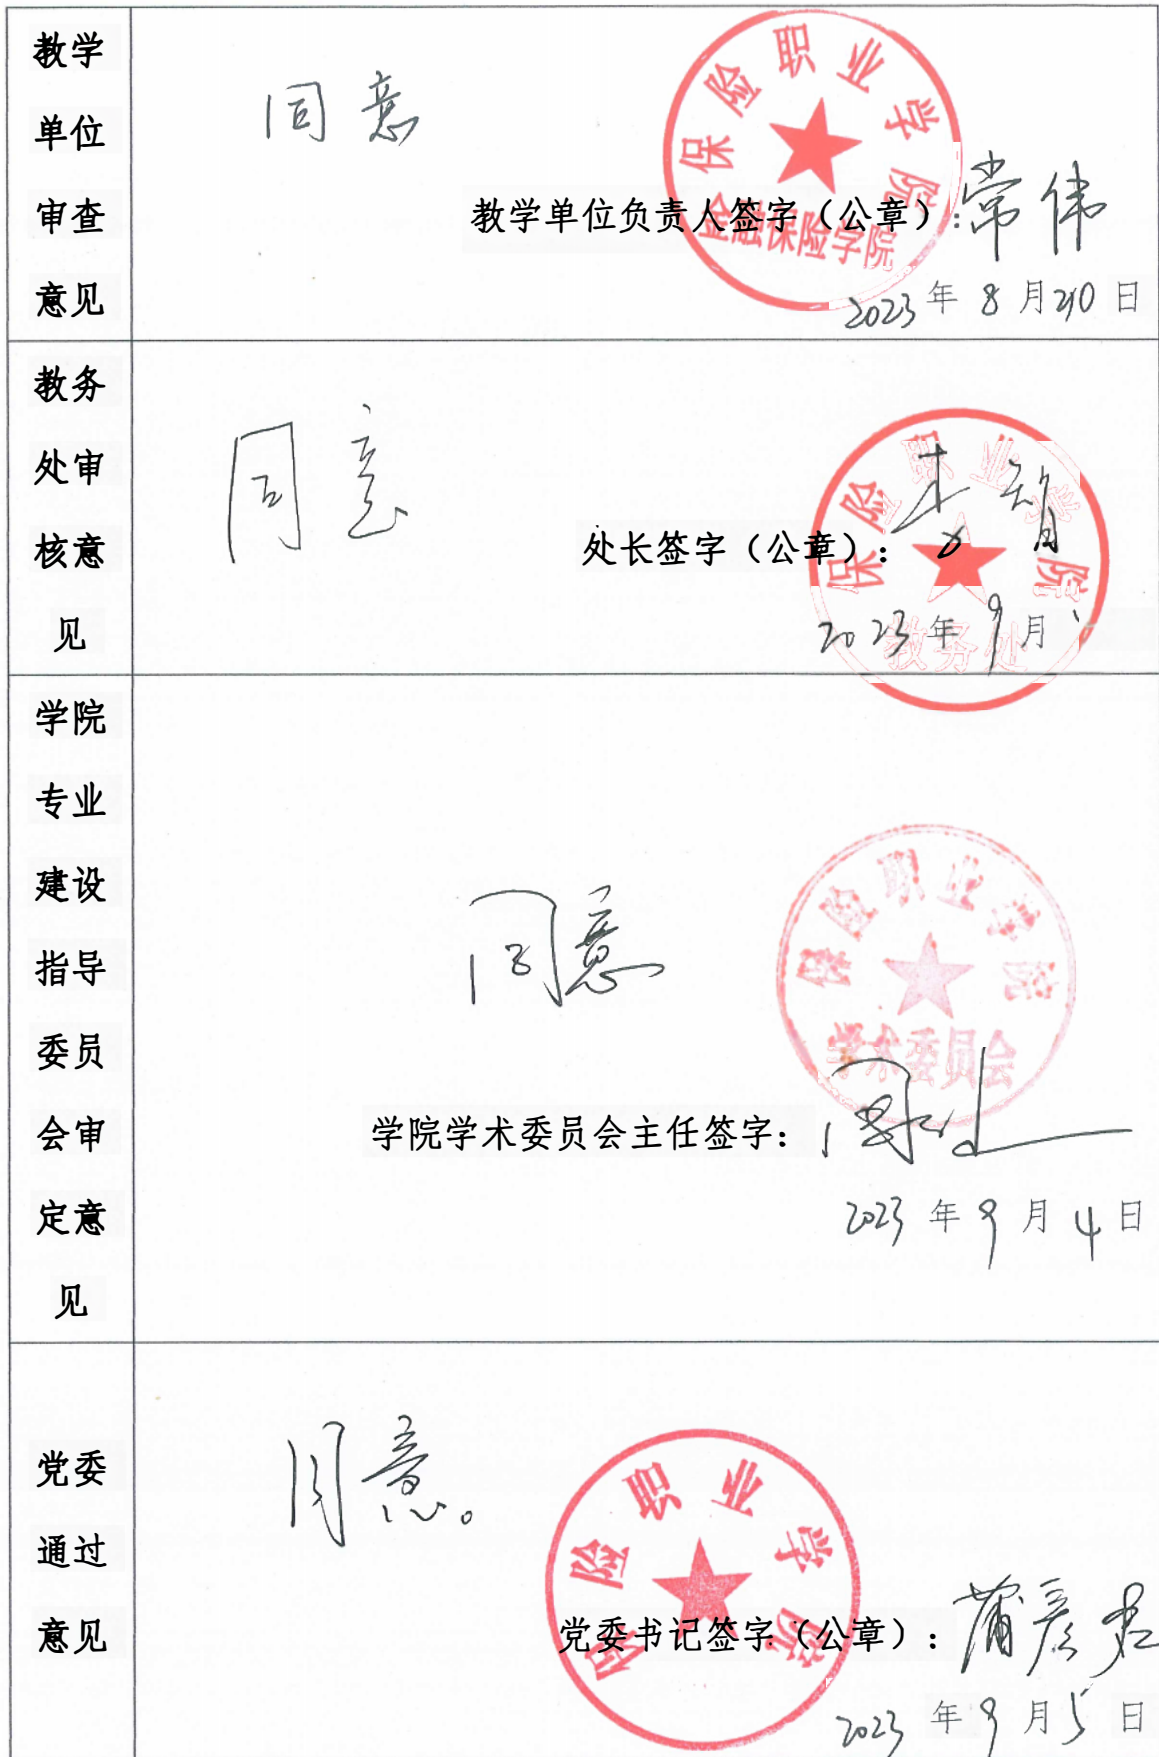 教学
单位
审查
意见
同意
保险职业学院
金融保险学院
教学单位负责人签字（公章）：常伟
2023年8月 日
教务
处审
核意
见
同意
保险职业学院
教务处
处长签字（公章）：
2023年9月
学院
专业
建设
指导
委员
会审
定意
见
同意
保险职业学院
学术委员会
学院学术委员会主任签字：
2023年9月4日
党委
通过
意见
同意。
保险职业学院
党委书记签字（公章）：蒲彦君
2023年9月5日